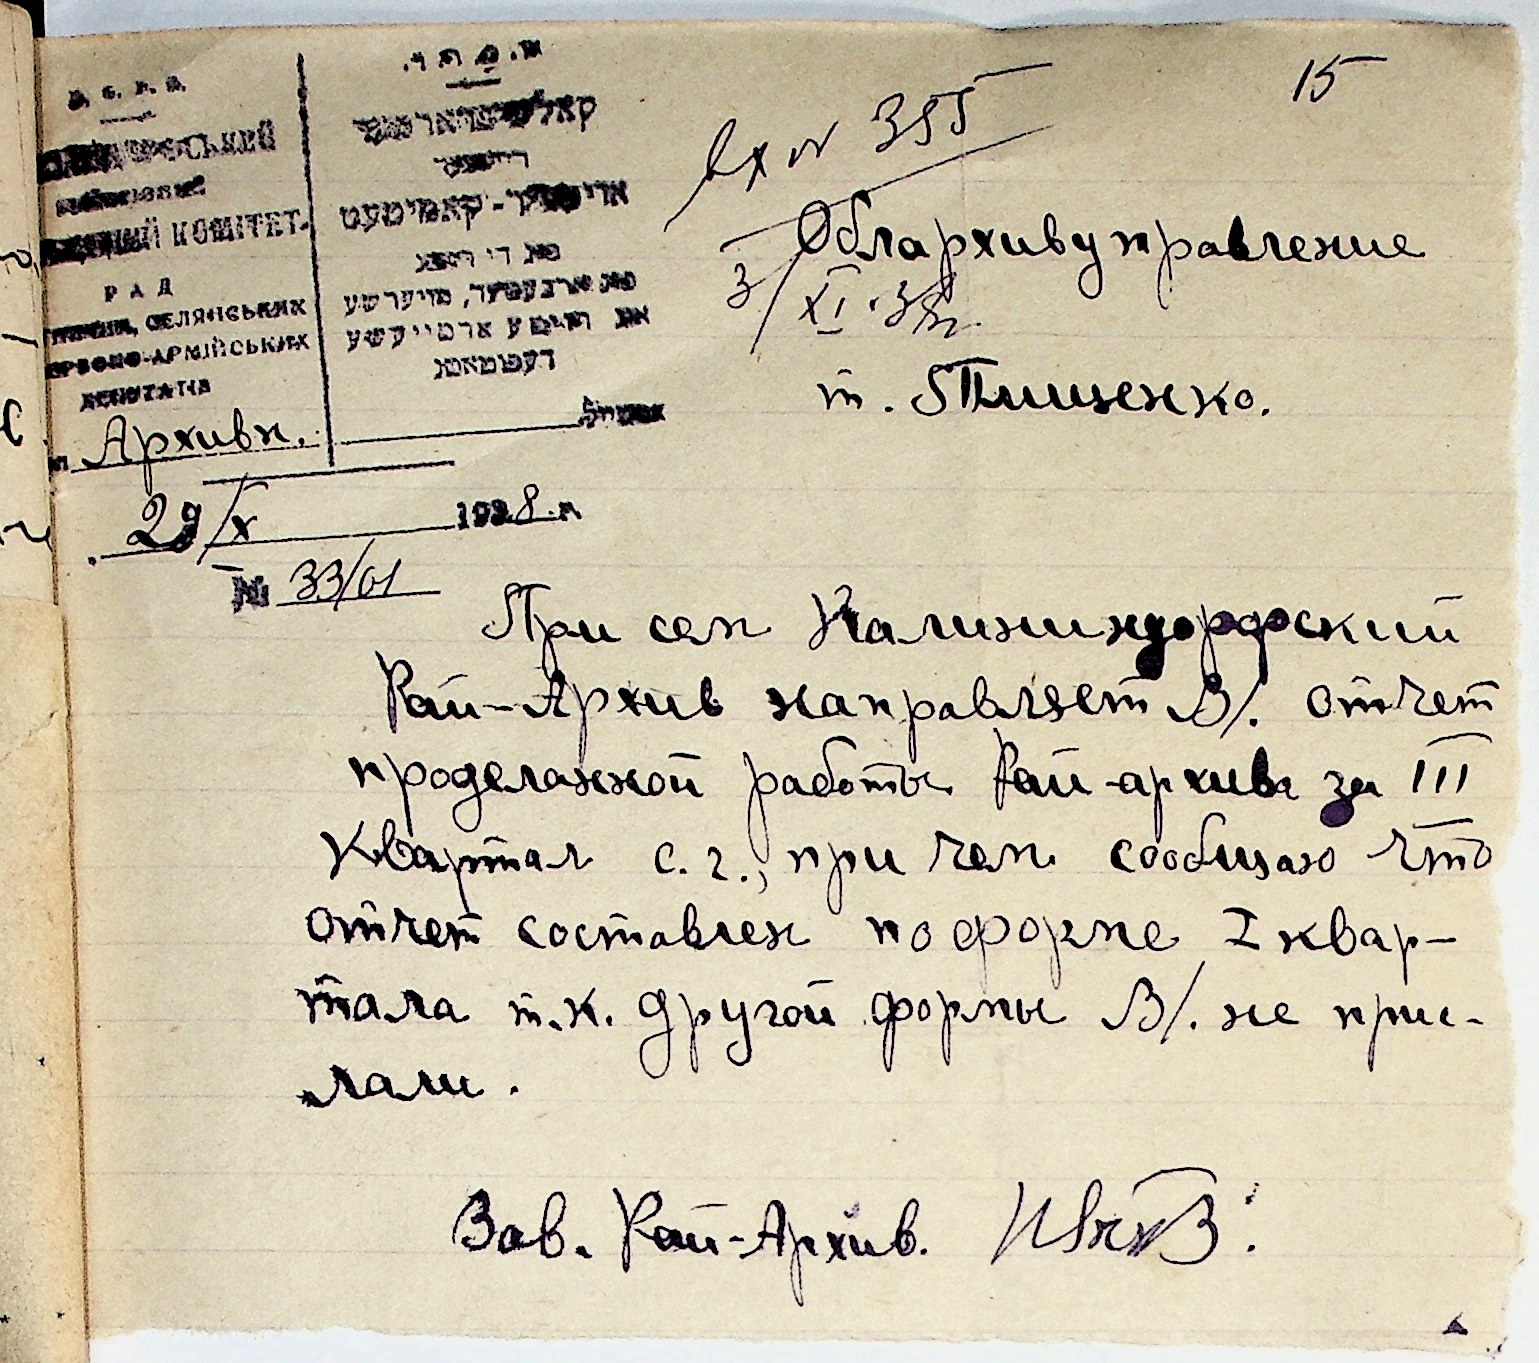 15
вх № 355
3/XI.38г.
У. С. Р. Р.
КОМІТЕТ.
РАД
СЕЛЯНСЬКИХ
ЧЕРВОНО-АРМІЙСЬКИХ
ДЕПУТАТІВ
Архивн.
קאמיטעט
פון די
פון ארבעטער, פויערשע
און רויטע ארמייישע
דעפוטאטן
29/X 1938 р.
№ 33/01
Облархивуправление
т. Пищенко.
При сем Калининдорфский
Рай-Архив направляет В/. отчет
проделанной работы Рай-архива за III
Квартал с. г., при чем сообщаю что
отчет составлен по форме I квар-
тала т.к. другой формы В/. не прис-
лали.
Зав. Рай-Архив.